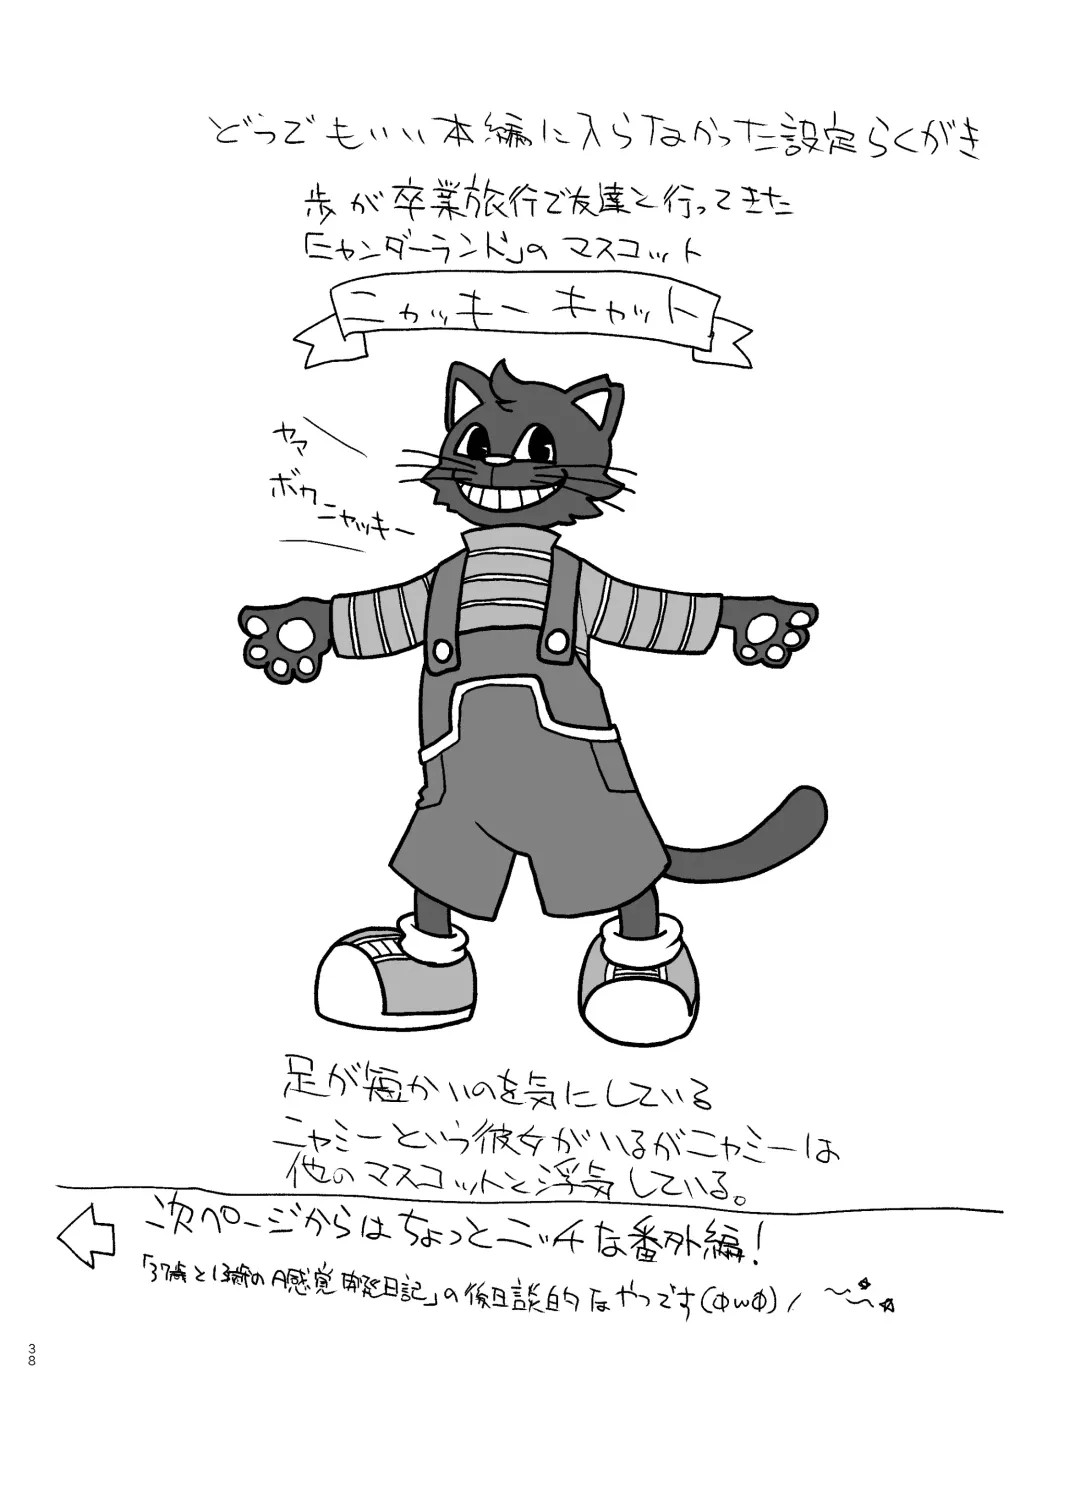 どうでもいい本編に入らなかった設定らくがき
歩が卒業旅行で友達と行ってきた
「ニャンダーランド」のマスコット
ニャッキーキャット
ヤァ
ボク
ニャッキー
足が短かいのを気にしている
ニャミーという彼女がいるがニャミーは
他のマスコットと浮気している。
次ページからはちょっとニッチな番外編!
「37歳と13歳の 感覚 日記」の後日談的なやつです(ФωФ)ノ
38